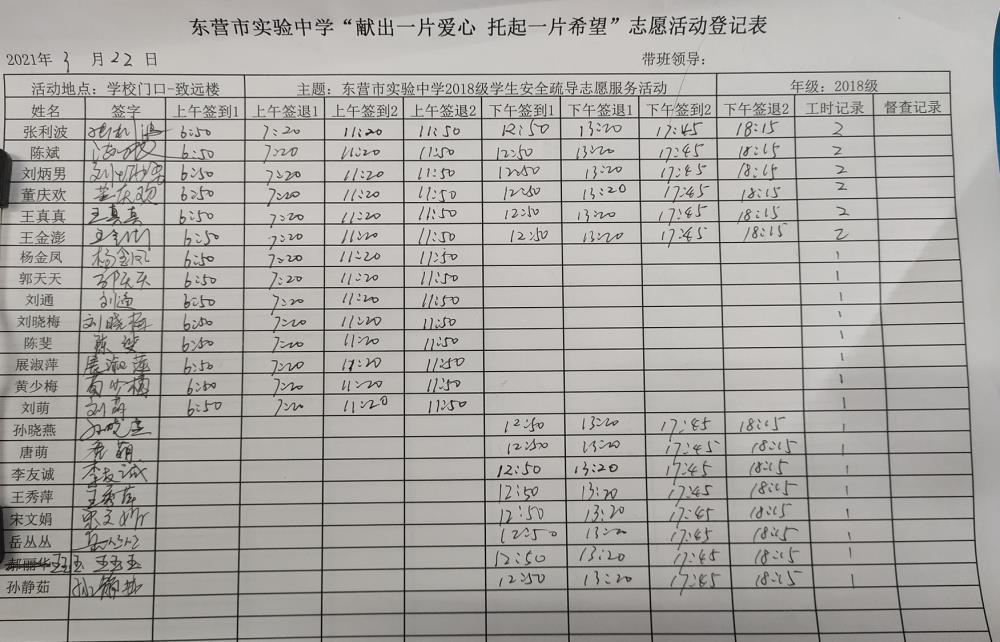 东营市实验中学“献出一片爱心 托起一片希望”志愿活动登记表
2021年 3 月 22 日 带班领导：
活动地点：学校门口-致远楼 主题：东营市实验中学2018级学生安全疏导志愿服务活动 年级：2018级
姓名 签字 上午签到1 上午签退1 上午签到2 上午签退2 下午签到1 下午签退1 下午签到2 下午签退2 工时记录 督查记录
张利波 张利波 6:50 7:20 11:20 11:50 12:50 13:20 17:45 18:15 2
陈斌 6:50 7:20 11:20 11:50 12:50 13:20 17:45 18:15 2
刘炳男 刘炳男 6:50 7:20 11:20 11:50 12:50 13:20 17:45 18:15 2
董庆欢 董庆欢 6:50 7:20 11:20 11:50 12:50 13:20 17:45 18:15 2
王真真 王真真 6:50 7:20 11:20 11:50 12:50 13:20 17:45 18:15 2
王金澎 王金澎 6:50 7:20 11:20 11:50 12:50 13:20 17:45 18:15 2
杨金凤 杨金凤 6:50 7:20 11:20 11:50 1
郭天天 郭天天 6:50 7:20 11:20 11:50 1
刘通 刘通 6:50 7:20 11:20 11:50 1
刘晓梅 刘晓梅 6:50 7:20 11:20 11:50 1
陈斐 陈斐 6:50 7:20 11:20 11:50 1
展淑萍 展淑萍 6:50 7:20 11:20 11:50 1
黄少梅 黄少梅 6:50 7:20 11:20 11:50 1
刘萌 刘萌 6:50 7:20 11:20 11:50 1
孙晓燕 孙晓燕 12:50 13:20 17:45 18:15 1
唐萌 唐萌 12:50 13:20 17:45 18:15 1
李友诚 李友诚 12:50 13:20 17:45 18:15 1
王秀萍 王秀萍 12:50 13:20 17:45 18:15 1
宋文娟 宋文娟 12:50 13:20 17:45 18:15 1
岳丛丛 岳丛丛 12:50 13:20 17:45 18:15 1
郝丽华 王玉玉 王玉玉 12:50 13:20 17:45 18:15 1
孙静茹 孙静茹 12:50 13:20 17:45 18:15 1